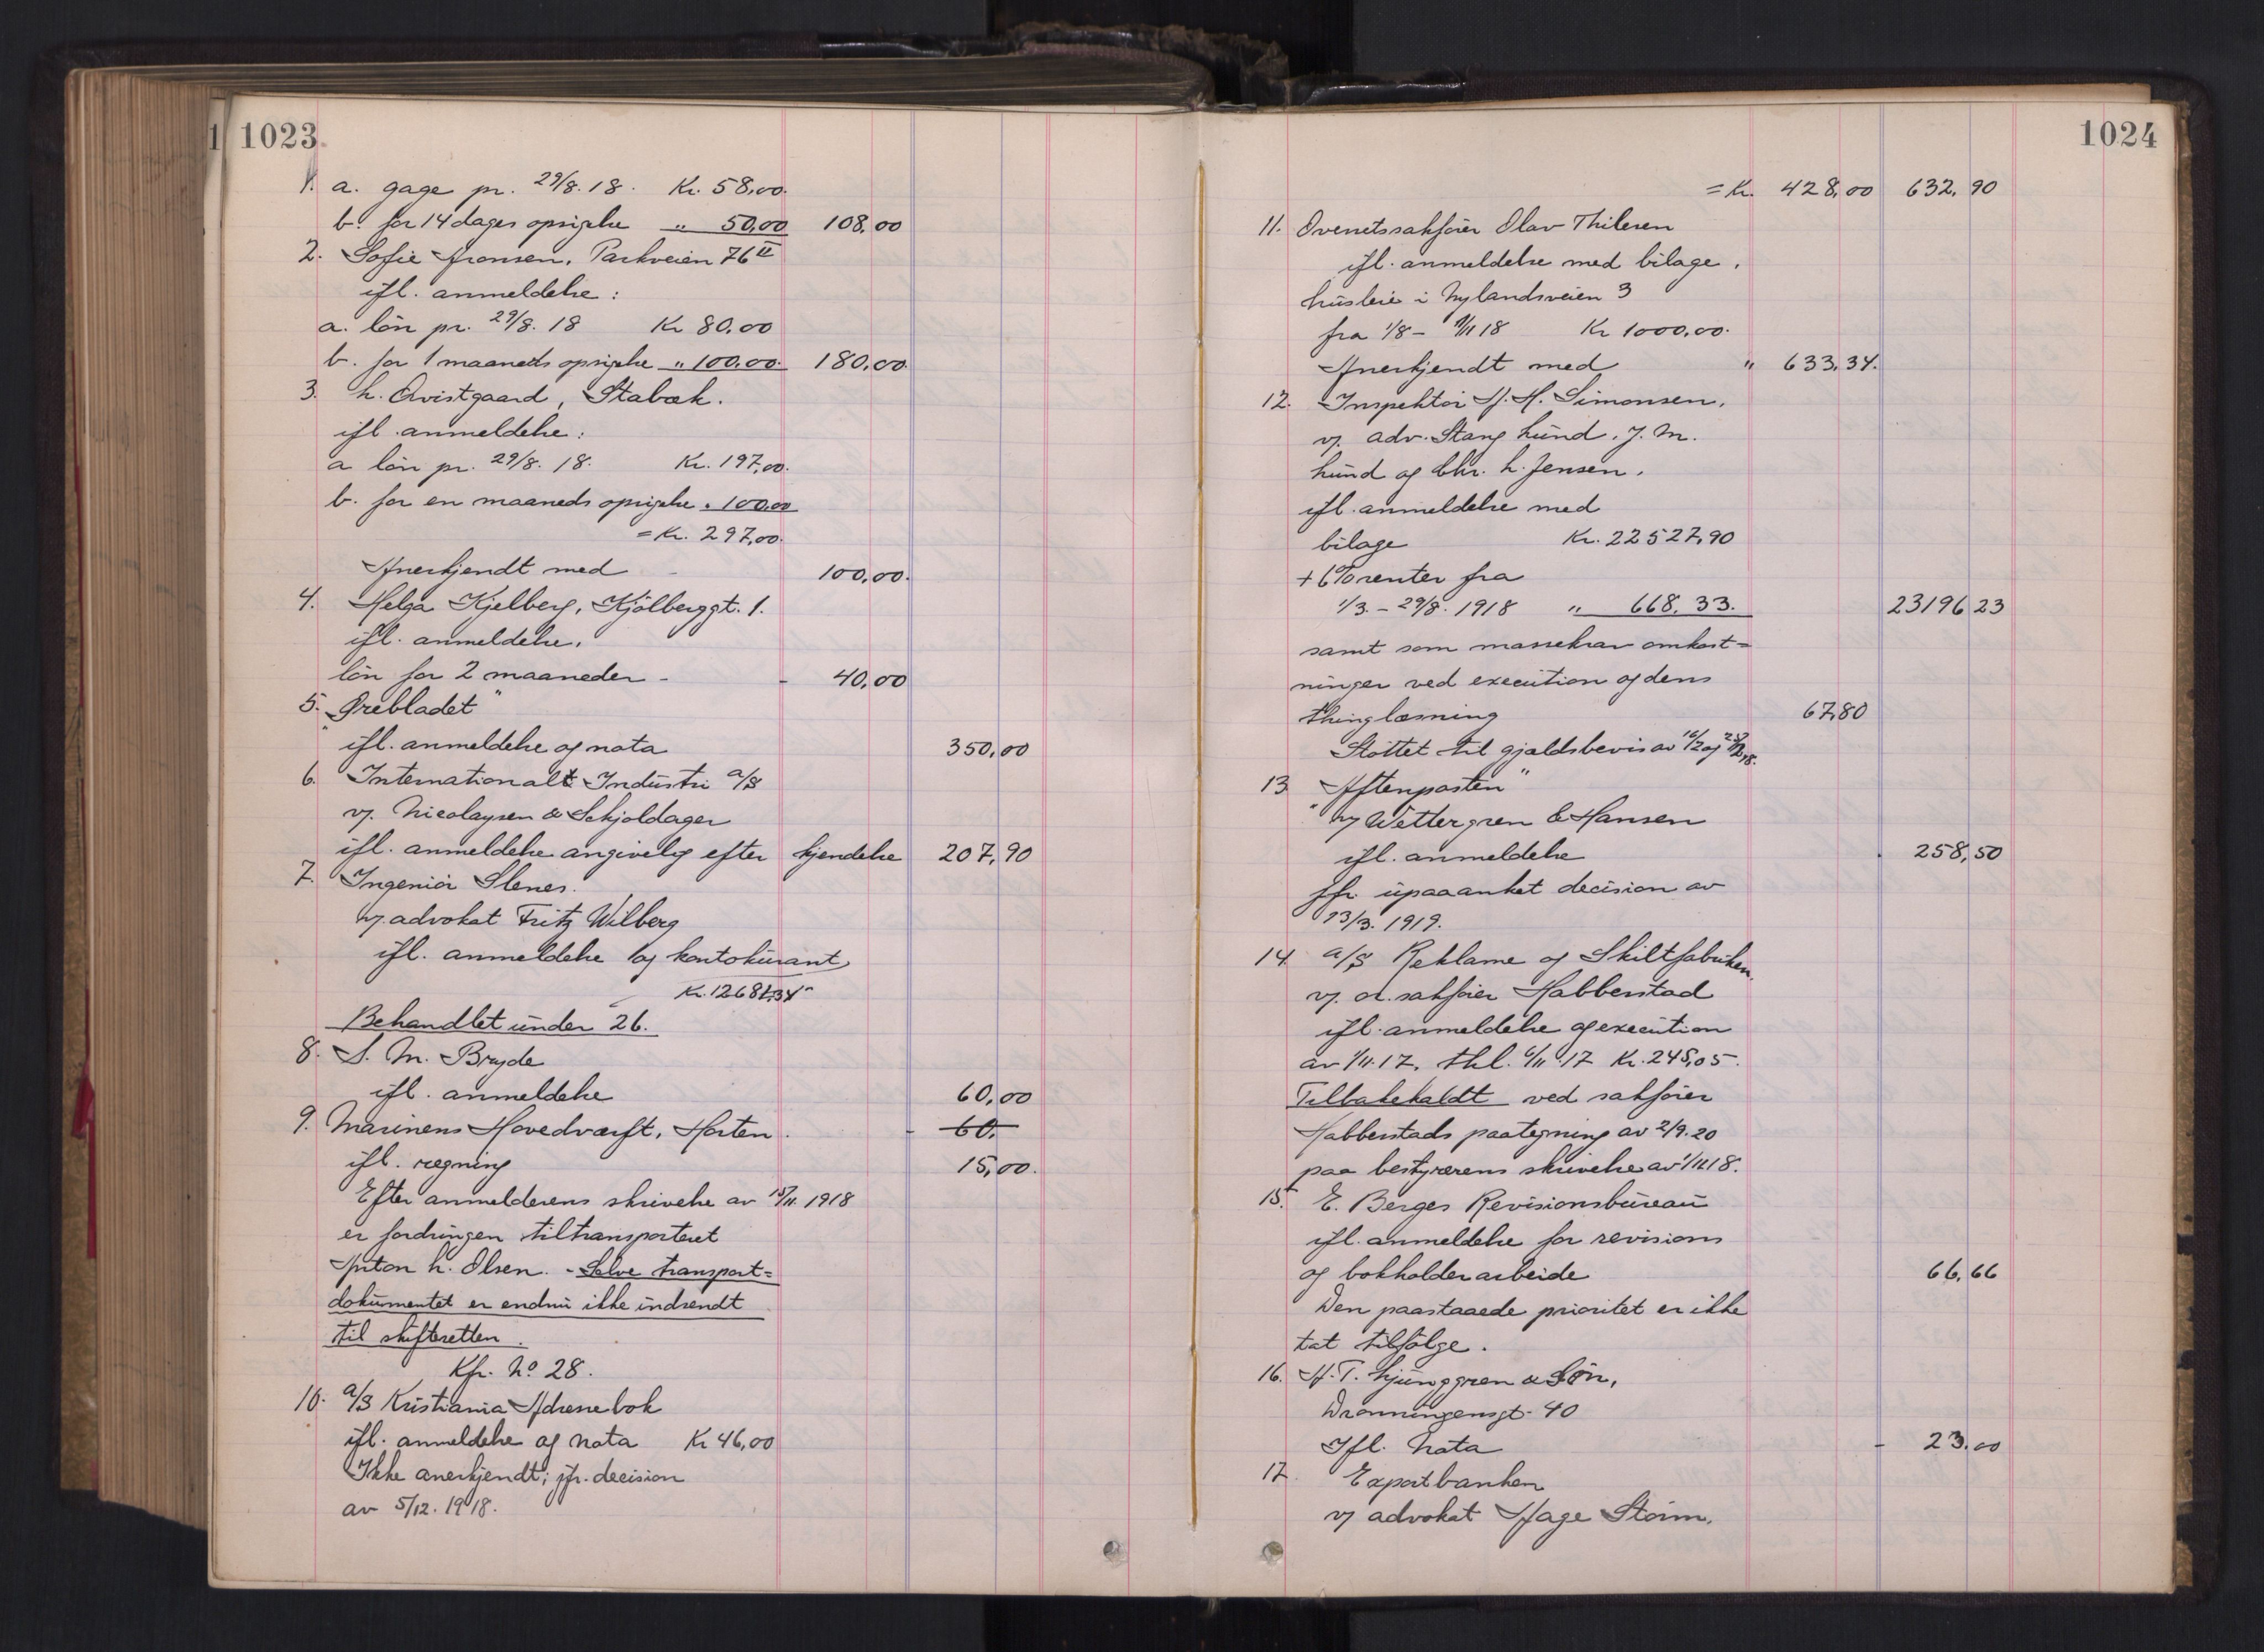 1 1023
1. a. gage pr. 29/8. 18. Kr. 58,00.
b. for 14 dages opsigelse „ 50,00 108,00
2. Sofie Aronsen, Parkveien 76 II
ifl. anmeldelse:
a. lön pr. 29/8. 18 Kr 80,00
b. for 1 maaneds opsigelse „ 100,00. 180,00.
3. L. Qvistgaard, Stabæk.
ifl. anmeldelse:
a lön pr. 29/8. 18. Kr. 197,00.
b. for en maaneds opsigelse „ 100,00
= Kr. 297,00.
Anerkjendt med - 100,00.
4. Helga Kjelberg, Kjölberggt. 1.
ifl. anmeldelse.
lön for 2 maaneder - - 40,00
5. „Ørebladet"
ifl. anmeldelse og nota 350,00
6. Internationalt Industri a/s
v/ Nicolaysen & Skjoldager
ifl. anmeldelse angivelig efter kjendelse 207,90
7. Ingeniör Slenes.
v/ advokat Fritz Wilberg
ifl. anmeldelse og kontokurant
Behandlet under 26.
8. S. M. Bryde
ifl. anmeldelse 60,00
9. Marinens Hovedværft, Horten. - 60.
ifl. regning 15,00.
Efter anmelderens skrivelse av 15/11. 1918
er fordringen tiltransporteret
Anton L. Olsen. - Selve transport=
dokumentet er endnu ikke indsendt
til skifteretten.
Kfr. No 28.
10. a/s Kristiania Adressebok
ifl. anmeldelse og nota Kr 46,00
Ikke anerkjendt; jfr. decision
av 5/12. 1918.
1024
= Kr. 428,00 632,90
11. Overretssakförer Olav Thilesen
ifl. anmeldelse med bilage.
husleie i Nylandsveien 3
fra 1/8 - 1/11 18 Kr 1000,00.
Anerkjendt med „ 633,34.
12. Inspektör A. H. Simonsen,
v/ adv. Stang Lund, J. M.
Lund og Chr. L. Jensen.
ifl. anmeldelse med
bilage Kr. 22527,90
+ 6% renter fra
1/3. - 29/8. 1918 „ 668,33. 23196 23
samt som massekrav omkost=
ninger ved execution og dens
thinglæsning 67,80
Stöttet til gjældsbevis av 16/2 og
13 „Aftenposten"
v/ Wettergren & Hansen
ifl. anmeldelse . 258,50
jfr. upaaanket decision av
13/3. 1919.
14 a/s Reklame og Skiltfabriken.
v/ o.r.sakförer Habberstad
ifl. anmeldelse og execution
av 1/11.17, thl. 6/11.17 Kr. 245,05.
Tilbakekaldt ved sakförer
Habberstads paategning av 2/9.20
paa bestyrerens skrivelse av 1/11 18.
15. E. Berges Revisionsbureau
ifl. anmeldelse for revisions
og bokholderarbeide 66,66
Den paastaaede prioritet er ikke
tat tilfölge.
16. A. T. Ljunggren & Sön,
Dronningensgt. 40
Ifl. Nota - 23.00
17 Exportbanken
v/ advokat Aage Storm.